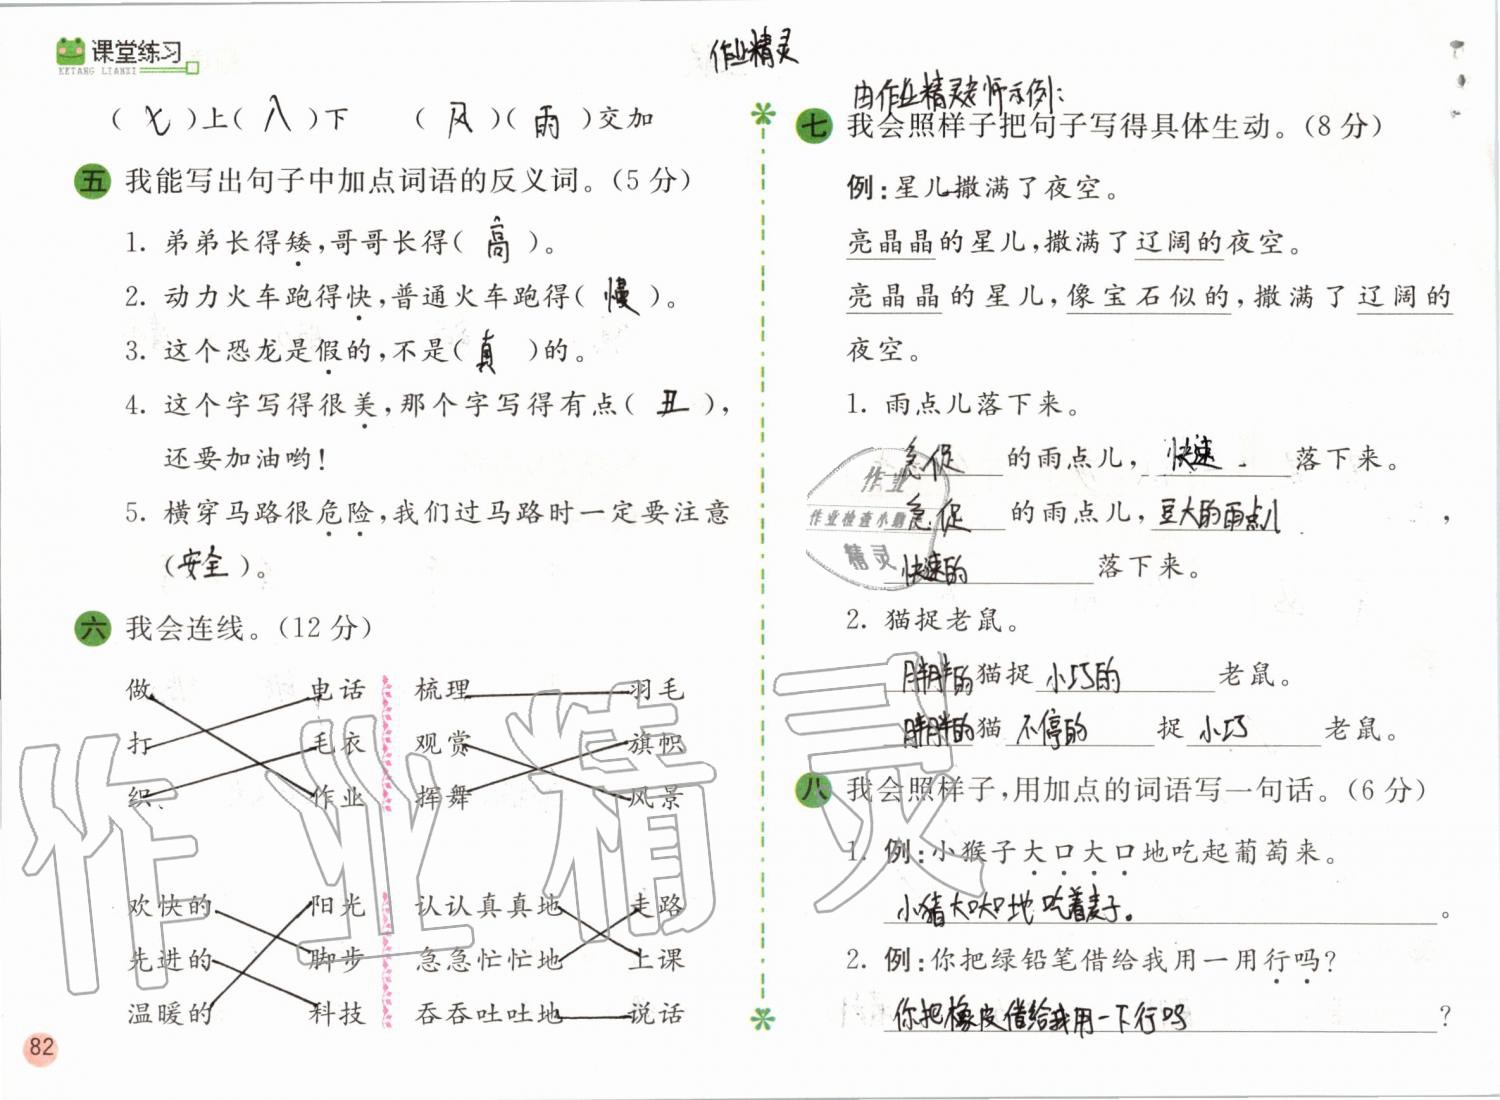 课堂练习
KETANG LIANXI
作业精灵
(七)上(八)下 (风)(雨)交加
五 我能写出句子中加点词语的反义词。(5分)
1. 弟弟长得矮,哥哥长得(高)。
2. 动力火车跑得快,普通火车跑得(慢)。
3. 这个恐龙是假的,不是(真)的。
4. 这个字写得很美,那个字写得有点(丑),
还要加油哟!
5. 横穿马路很危险,我们过马路时一定要注意
(安全)。
六 我会连线。(12分)
做 电话 梳理 羽毛
打 毛衣 观赏 旗帜
织 作业 挥舞 风景
欢快的 阳光 认认真真地 走路
先进的 脚步 急急忙忙地 上课
温暖的 科技 吞吞吐吐地 说话
82
由作业精灵老师示例:
七 我会照样子把句子写得具体生动。(8分)
例:星儿撒满了夜空。
亮晶晶的星儿,撒满了辽阔的夜空。
亮晶晶的星儿,像宝石似的,撒满了辽阔的
夜空。
1. 雨点儿落下来。
急促的雨点儿,快速落下来。
急促的雨点儿,豆大的雨点儿,
快速的落下来。
2. 猫捉老鼠。
胖胖的猫捉小巧的老鼠。
胖胖的猫不停的捉小巧老鼠。
八 我会照样子,用加点的词语写一句话。(6分)
1. 例:小猴子大口大口地吃起葡萄来。
小猪大口大口地吃着麦子。。
2. 例:你把绿铅笔借给我用一用行吗?
你把橡皮借给我用一下行吗?
作业
作业检查小助
精灵
作业精灵